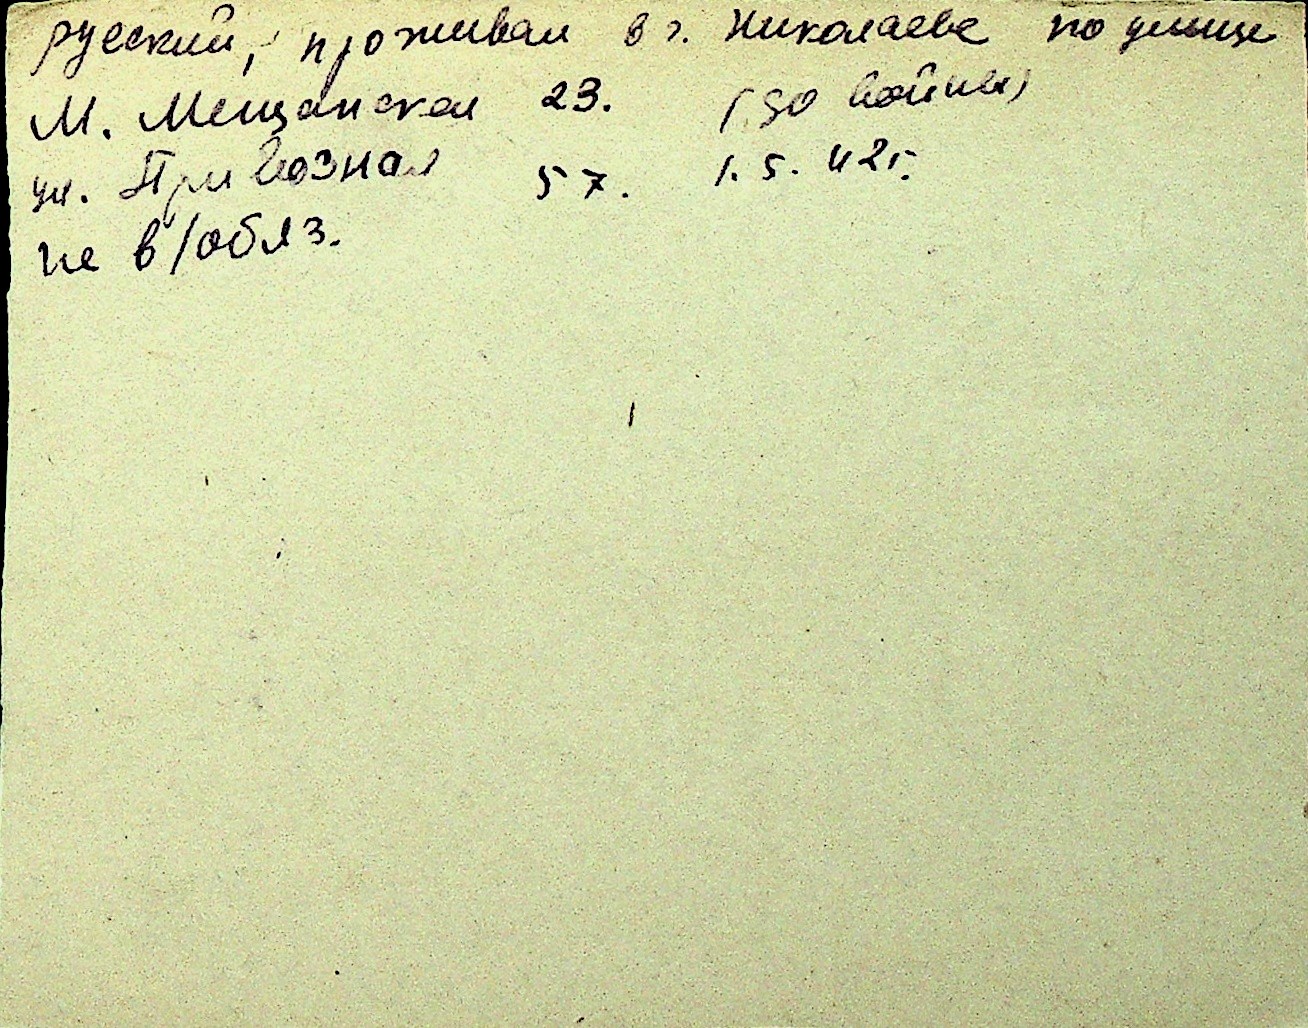 русский, проживал в г. Николаеве по улице
М. Мещанская 23. (до войны)
ул. Привозная 57. 1.5.42г.
не в/обяз.